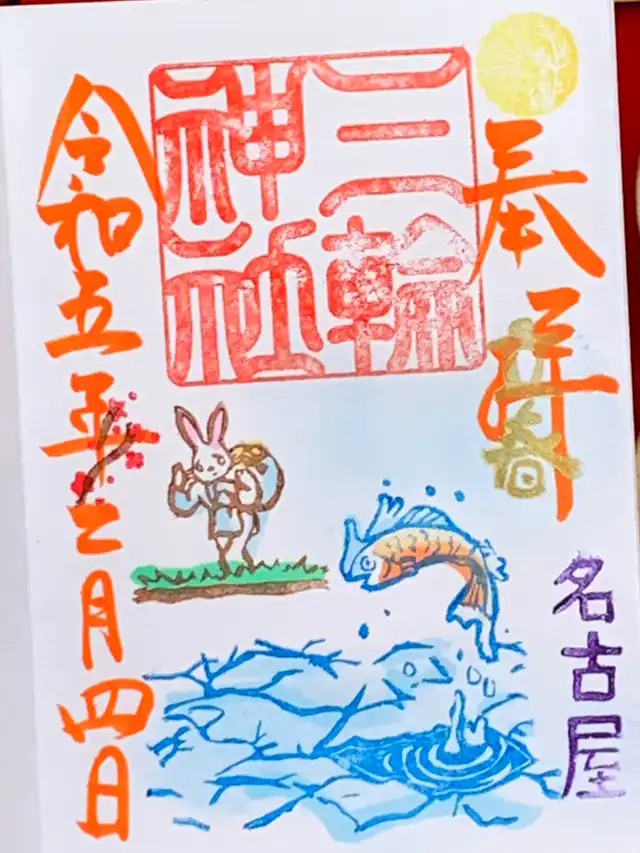 奉拝
立春
名古屋
三輪
神社
令和五年二月四日